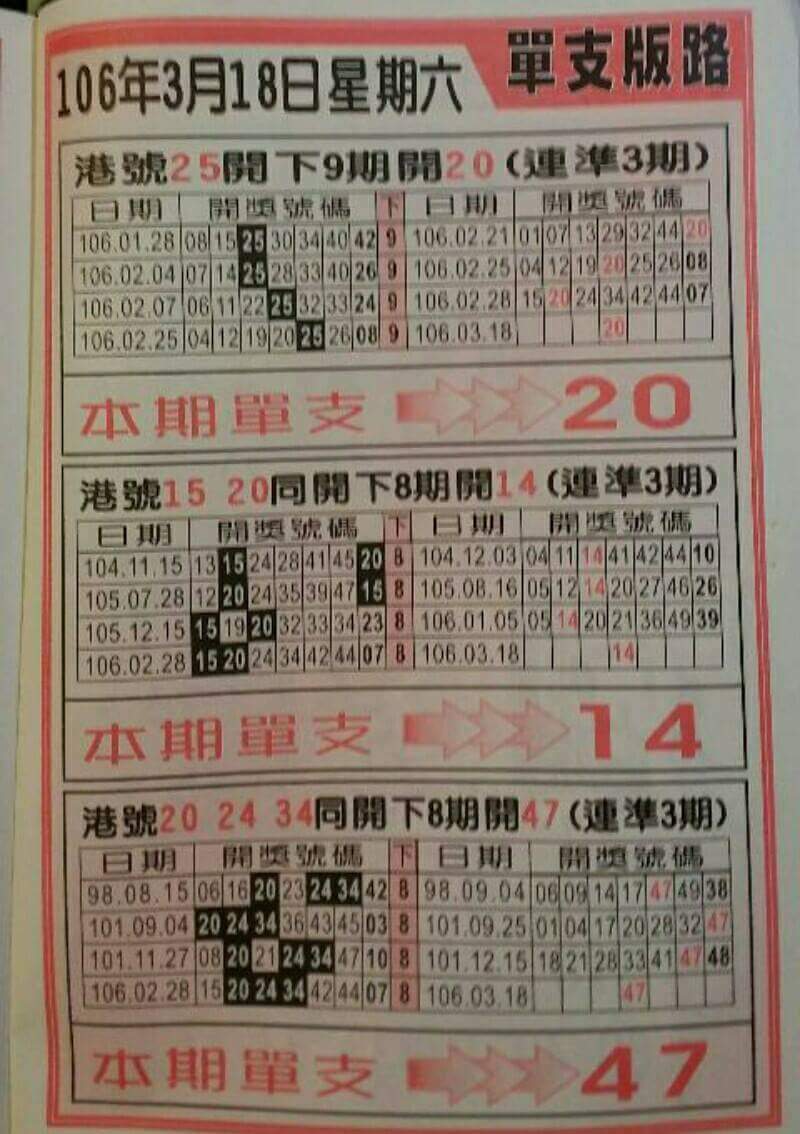 單支版路
106年3月18日星期六
港號25開下9期開20(連準3期)
日期 開獎號碼 下 日期 開獎號碼
106.01.28 08 15 25 30 34 40 42 9 106.02.21 01 07 13 29 32 44 20
106.02.04 07 14 25 28 33 40 26 9 106.02.25 04 12 19 20 25 26 08
106.02.07 06 11 22 25 32 33 24 9 106.02.28 15 20 24 34 42 44 07
106.02.25 04 12 19 20 25 26 08 9 106.03.18 20
本期單支 20
港號15 20同開下8期開14(連準3期)
日期 開獎號碼 下 日期 開獎號碼
104.11.15 13 15 24 28 41 45 20 8 104.12.03 04 11 14 41 42 44 10
105.07.28 12 20 24 35 39 47 15 8 105.08.16 05 12 14 20 27 46 26
105.12.15 15 19 20 32 33 34 23 8 106.01.05 05 14 20 21 36 49 39
106.02.28 15 20 24 34 42 44 07 8 106.03.18 14
本期單支 14
港號20 24 34同開下8期開47(連準3期)
日期 開獎號碼 下 日期 開獎號碼
98.08.15 06 16 20 23 24 34 42 8 98.09.04 06 09 14 17 47 49 38
101.09.04 20 24 34 36 43 45 03 8 101.09.25 01 04 17 20 28 32 47
101.11.27 08 20 21 24 34 47 10 8 101.12.15 18 21 28 33 41 47 48
106.02.28 15 20 24 34 42 44 07 8 106.03.18 47
本期單支 47